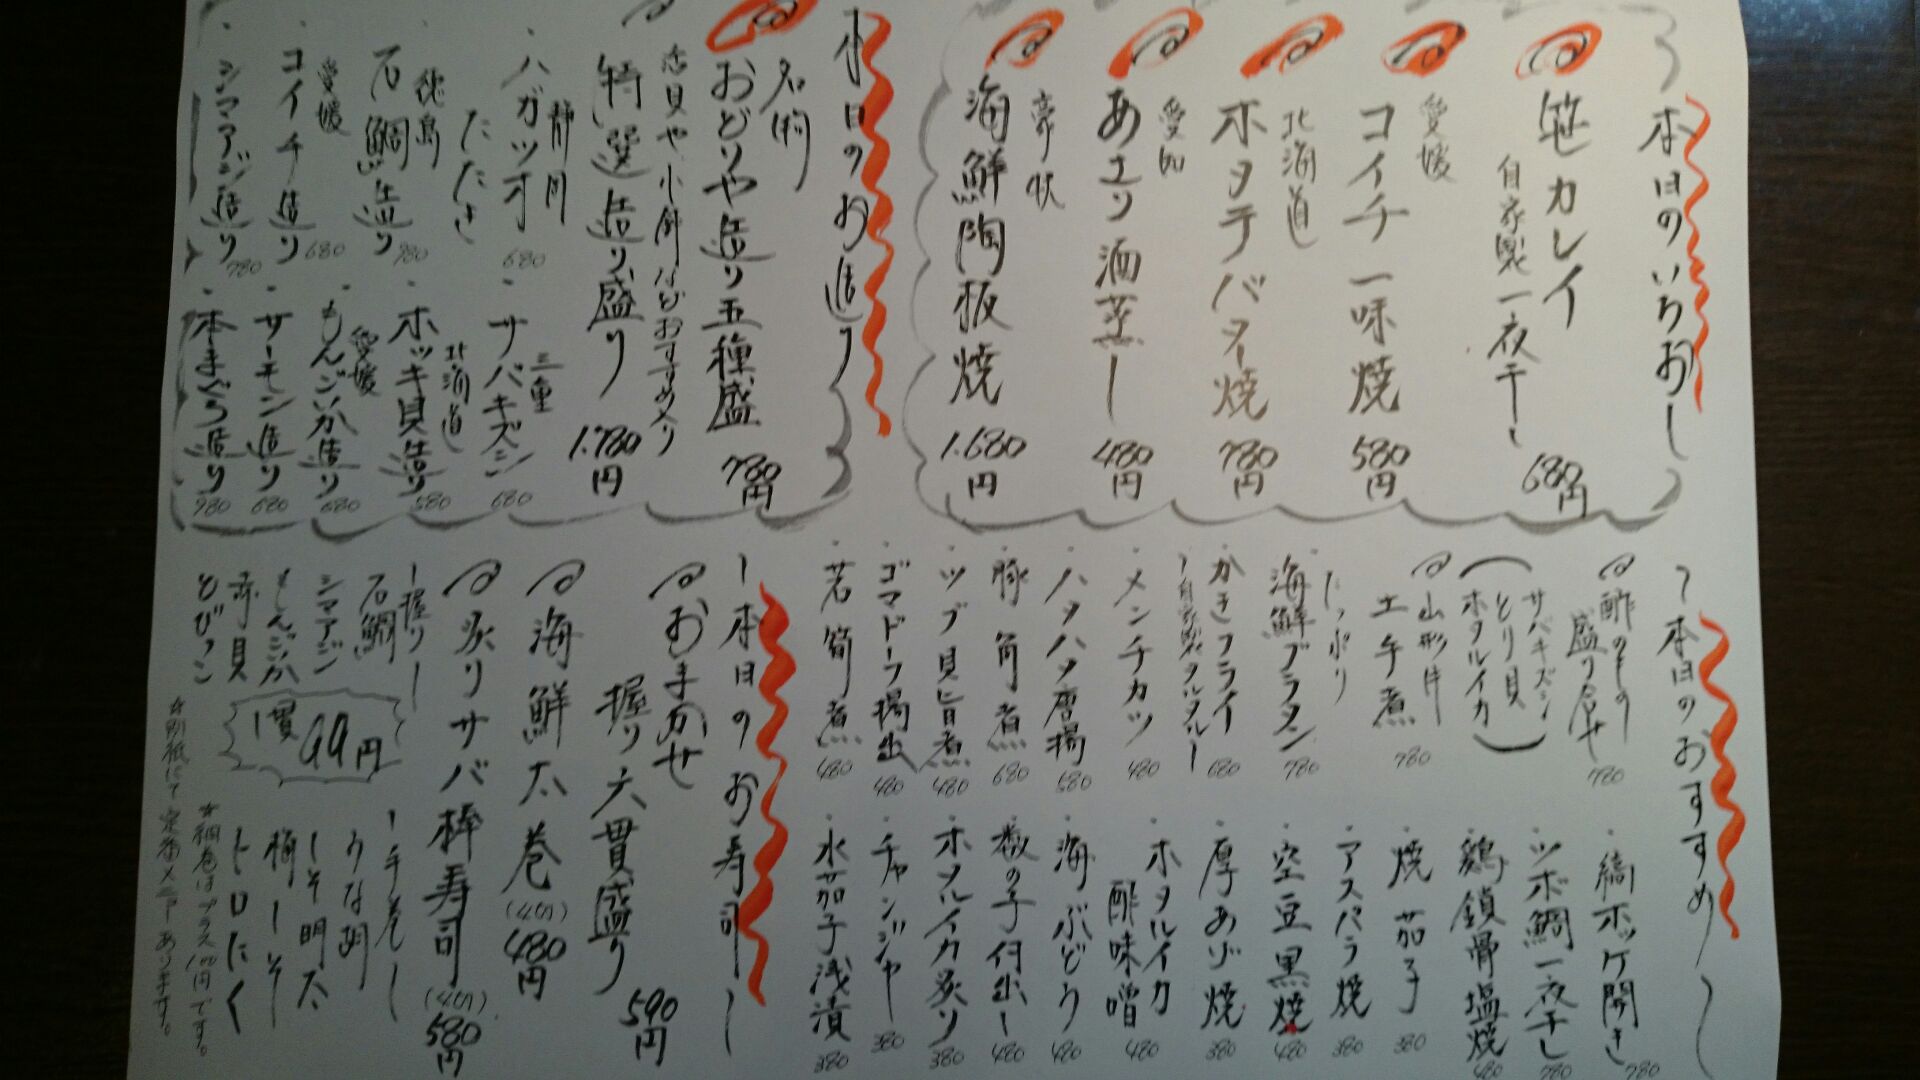 本日のいちおし
笹カレイ
自家製一夜干し
680円
愛媛
コイチ一味焼
580円
北海道
ホタテバター焼
780円
愛知
あさり酒蒸し
480円
海鮮陶板焼
1.680円
本日のお造り
名物
おどりや造り五種盛
780円
活貝や小鉢などおすすめ入り
特選造り盛り
1.780円
静岡
ハガツオ
たたき
680
徳島
石鯛造り
780
愛媛
コイチ造り
680
シマアジ造り
780
三重
サバキズシ
680
北海道
ホッキ貝造り
580
愛媛
もんごいか造り
680
サーモン造り
680
本まぐろ造り
980
〜本日のおすすめ〜
酢のもの
盛り合せ
780
(サバキズシ
とり貝
ホタルイカ)
山形牛
土手煮
780
たっぷり
海鮮グラタン
780
かきフライ
680
ー自家製タルタルー
メンチカツ
480
ハタハタ唐揚
580
豚角煮
680
ツブ貝旨煮
480
ゴマドーフ揚出し
480
若筍煮
480
縞ホッケ開き
780
ツボ鯛一夜干し
780
鶏鎖骨塩焼
480
焼茄子
380
アスパラ焼
380
空豆黒焼
480
厚あげ焼
380
ホタルイカ
酢味噌
480
海ぶどう
480
数の子付出し
480
ホタルイカ炙り
380
チャンジャ
380
水茄子浅漬
380
ー本日のお寿司ー
おまかせ
握り六貫盛り
590円
海鮮太巻
(4切)
480円
炙りサバ棒寿司
(4切)
580円
ー握りー
石鯛
シマアジ
もんごいか
赤貝
とびっこ
1貫99円
ー手巻ー
うな胡
しそ明太
梅しそ
トロたく
☆細巻はプラス100円です。
☆別紙にて定番メニューあります。